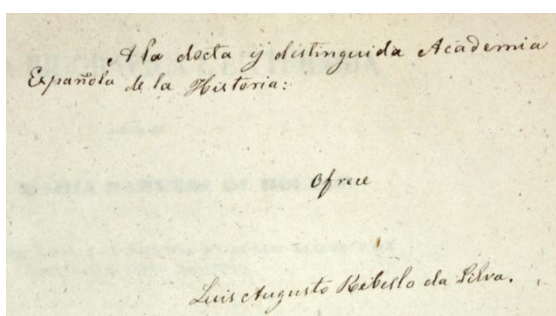 A la docta y distinguida Academia
Española de la Historia:
Ofrece
Luis Augusto Rebello da Silva.